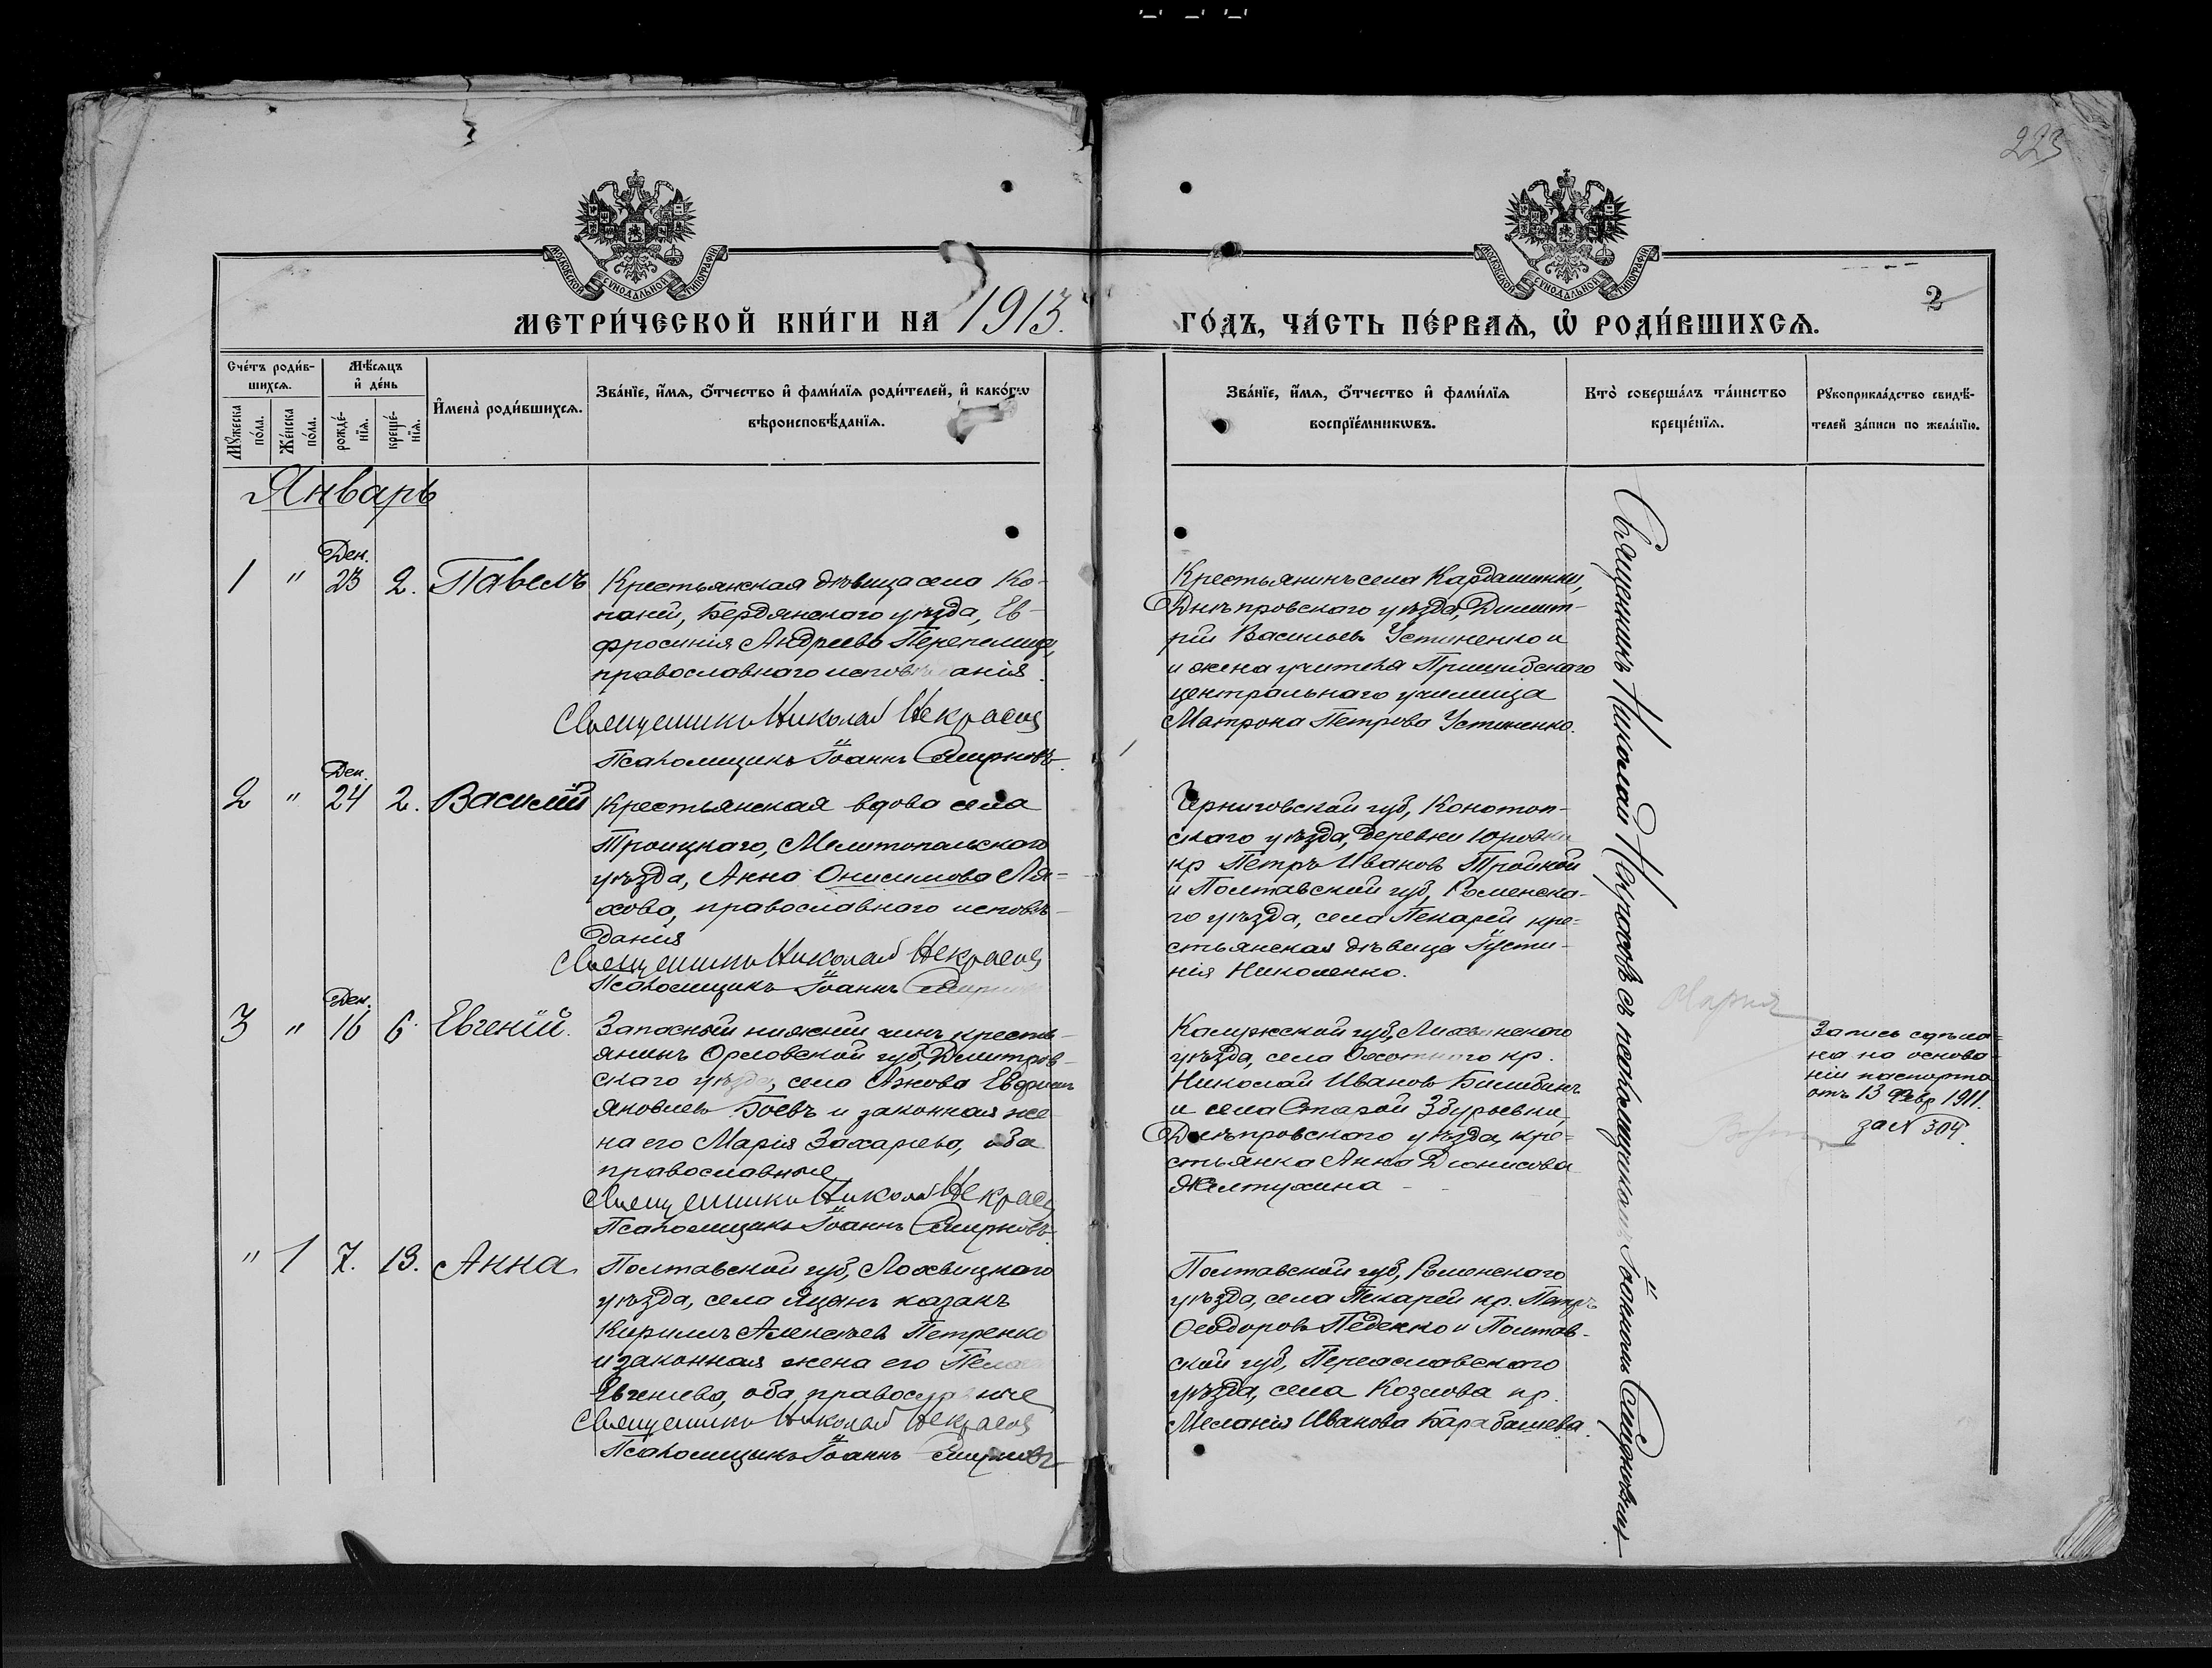 223
МОСКОВСКОЙ СѴНОДАЛЬНОЙ ТИПОГРАФІИ
МОСКОВСКОЙ СѴНОДАЛЬНОЙ ТИПОГРАФІИ
2
МЕТРИ́ЧЕСКОЙ КНИ́ГИ НА 1913. ГО́ДЪ, ЧА́СТЬ ПЕ́РВАѦ, Ѡ РОДИ́ВШИХСѦ.
Сче́тъ роди́в-
шихсѧ.
Мꙋжеска
по́ла.
Же́нска
по́ла.
Мѣ́сѧцъ
и҆ де́нь
рожде́-
нїѧ.
креще́-
нїѧ.
И҆мена̀ роди́вшихсѧ.
Зва́нїе, и҆́мѧ, ѻ҆́тчество и҆ фами́лїѧ роди́телей, и҆ како́гѡ
вѣроисповѣ́данїѧ.
Зва́нїе, и҆́мѧ, ѻ҆́тчество и҆ фами́лїѧ
воспрїе́мникѡвъ.
Кто̀ соверша́лъ та́инство
креще́нїѧ.
Рꙋкоприкла́дство свидѣ́-
телей за́писи по жела́нїю.
Январь
1 " Дек. 23 2. Павелъ
Крестьянская дѣвица села Ко-
паней, Бердянскаго уѣзда, Ев-
фросинія Андреева Перепелица,
православнаго исповѣданія.
Священникъ Николай Некрасовъ
Псаломщикъ Іоаннъ Смирновъ.
Крестьянинъ села Кардашинки,
Днѣпровскаго уѣзда, Димит-
рій Васильевъ Устименко и
и жена учителя Пришибскаго
центральнаго училища
Матрона Петрова Устименко.
2 " Дек. 24 2. Василій
Крестьянская вдова села
Троицкаго, Мелитопольскаго
уѣзда, Анна Онисимова Ля-
хова, православнаго исповѣ-
данія
Священникъ Николай Некрасовъ
Псаломщикъ Іоаннъ Смирновъ
Черниговской губ, Конотоп-
скаго уѣзда, деревни Юровки
кр Петръ Ивановъ
и Полтавской губ, Роменска-
го уѣзда, села Пекарей кре-
стьянская дѣвица Іусти-
нія Николенко.
3 " Дек. 16 6. Евгеній.
Запасный нижній чинъ крестья-
янинъ Орловской губ, Димитров-
скаго уѣзда, села
Яковлевъ Боевъ и законная же-
на его Марія Захарьева, оба
православные
Священникъ Николай Некрасовъ
Псаломщикъ Іоаннъ Смирновъ.
Калужской губ, Лихвинскаго
уѣзда, села Охотнаго кр.
Николай Ивановъ Билибинъ
и села Старой Збурьевки,
Днѣпровскаго уѣзда, кре-
стьянка Анна Діонисова
Желтухина
Запись сдѣла-
на на основа-
ніи паспорта
отъ 13 Февр 1911.
за N 304.
" 1 7. 13. Анна
Полтавской губ, Лохвицкаго
уѣзда, села Яцынъ казакъ
Кириллъ Алексѣевъ Петренко
и законная жена его
Евгеніева, оба православные
Священникъ Николай Некрасовъ
Псаломщикъ Іоаннъ Смирновъ
Полтавской губ, Роменскаго
уѣзда, села Пекарей кр. Петръ
Ѳеодоровъ Педенко и Полтав-
ской губ, Переяславскаго
уѣзда, села Козлова кр.
Меланія Иванова Барабашева.
Священникъ Николай Некрасовъ съ псаломщикомъ Іоанномъ Смирновымъ